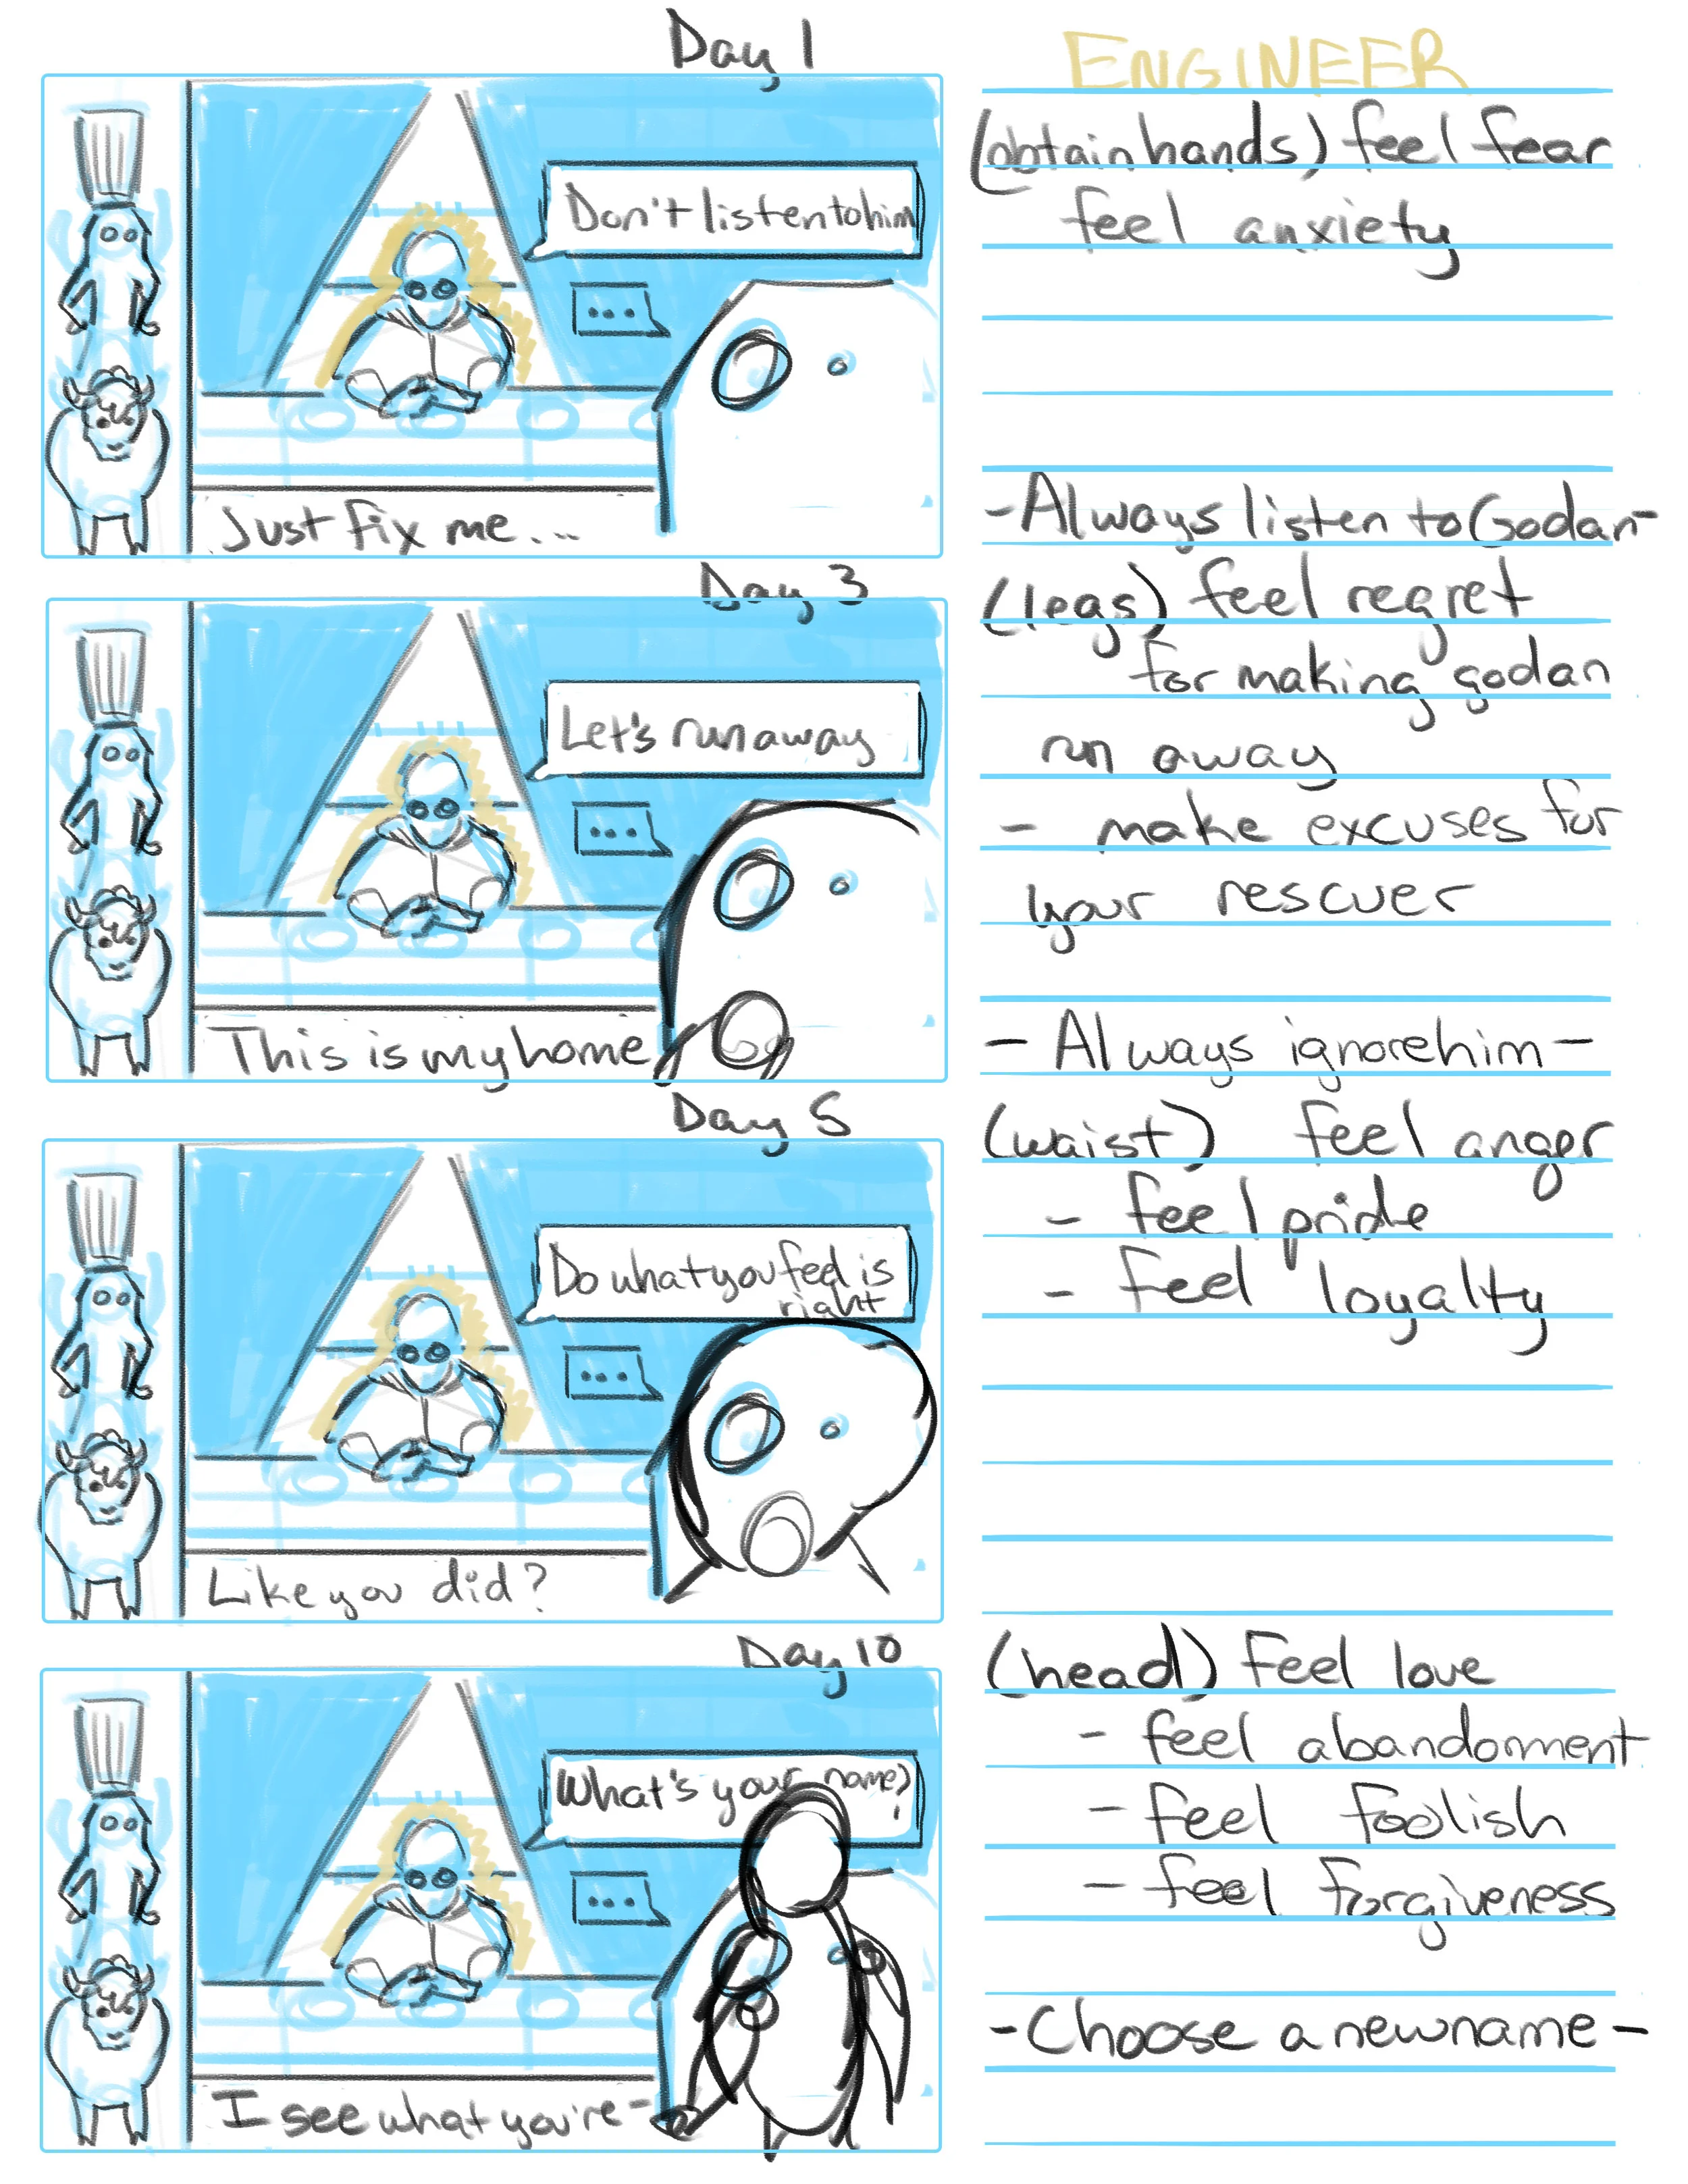 Day 1
Don't listen to him
...
Just fix me...
Day 3
Let's run away
...
This is my home
Day 5
Do what you feel is
right
...
Like you did?
Day 10
What's your name?
...
I see what you're-
ENGINEER
(obtain hands) feel fear
feel anxiety
-Always listen to Godan-
(legs) feel regret
for making godan
run away
- make excuses for
your rescuer
- Always ignore him -
(waist) feel anger
- feel pride
- feel loyalty
(head) Feel love
- feel abandonment
- feel foolish
- feel forgiveness
-Choose a new name-